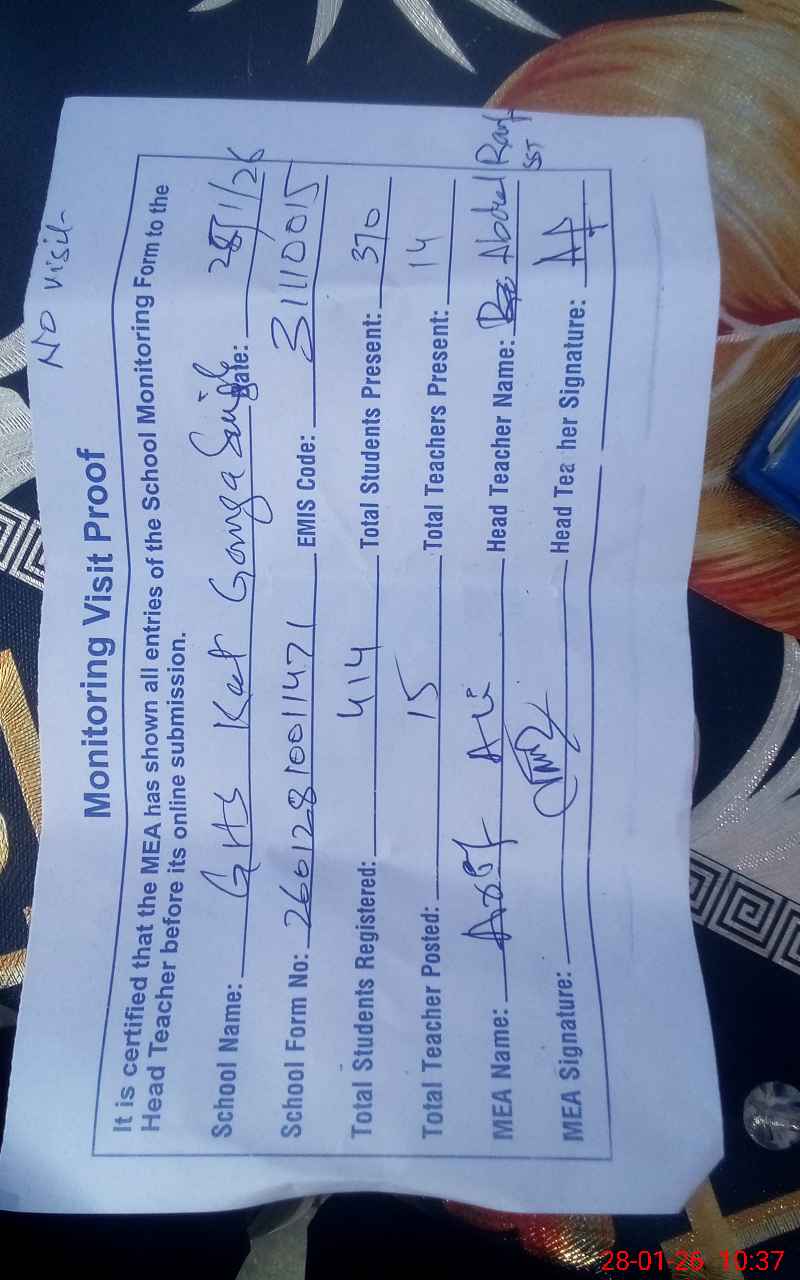 No visit
Monitoring Visit Proof
It is certified that the MEA has shown all entries of the School Monitoring Form to the
Head Teacher before its online submission.
School Name: GHS Kot Ganga Singh Date: 28/1/26
School Form No: 2661281001471 EMIS Code: 31110015
Total Students Registered: 414 Total Students Present: 370
Total Teacher Posted: 15 Total Teachers Present: 14
MEA Name: Ali Head Teacher Name: Abdul Rauf
SST
MEA Signature: Head Teacher Signature:
28-01-26 10:37